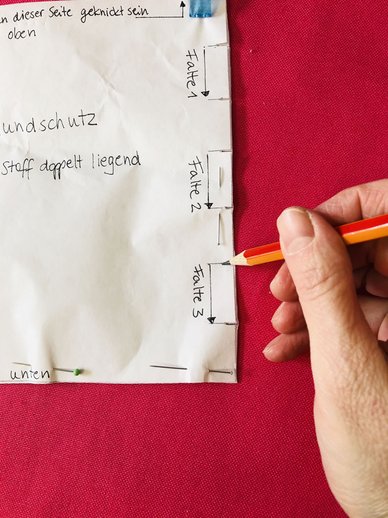 dieser Seite geknickt sein
oben
Falte 1
undschutz
Stoff doppelt liegend
Falte 2
Falte 3
unten